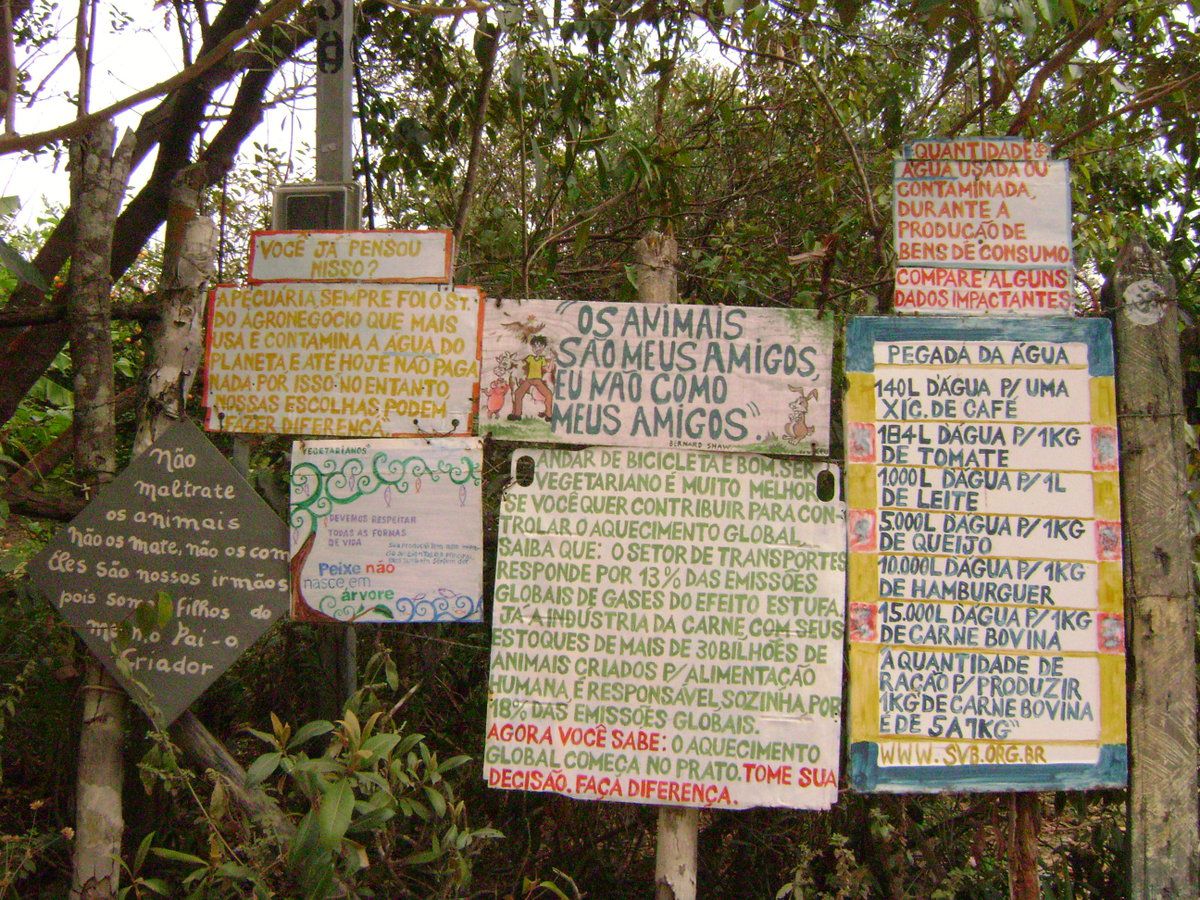 VOCÊ JÁ PENSOU
NISSO?
A PECUÁRIA SEMPRE FOI O ST.
DO AGRONEGÓCIO QUE MAIS
USA E CONTAMINA A ÁGUA DO
PLANETA E ATÉ HOJE NÃO PAGA
NADA POR ISSO. NO ENTANTO,
NOSSAS ESCOLHAS PODEM
FAZER DIFERENÇA.
Não
maltrate
os animais
não os mate, não os com
Eles são nossos irmãos
pois somos filhos do
mesmo Pai - o
Criador
VEGETARIANOS
DEVEMOS RESPEITAR
TODAS AS FORMAS
DE VIDA
Peixe não
nasce em
árvore
"OS ANIMAIS
SÃO MEUS AMIGOS,
EU NÃO COMO
MEUS AMIGOS."
BERNARD SHAW
ANDAR DE BICICLETA É BOM, SER
VEGETARIANO É MUITO MELHOR
SE VOCÊ QUER CONTRIBUIR PARA CON-
TROLAR O AQUECIMENTO GLOBAL,
SAIBA QUE: O SETOR DE TRANSPORTES
RESPONDE POR 13% DAS EMISSÕES
GLOBAIS DE GASES DO EFEITO ESTUFA.
JÁ A INDÚSTRIA DA CARNE COM SEUS
ESTOQUES DE MAIS DE 30 BILHÕES DE
ANIMAIS CRIADOS P/ ALIMENTAÇÃO
HUMANA, É RESPONSÁVEL SOZINHA POR
18% DAS EMISSÕES GLOBAIS.
AGORA VOCÊ SABE: O AQUECIMENTO
GLOBAL COMEÇA NO PRATO. TOME SUA
DECISÃO. FAÇA DIFERENÇA.
QUANTIDADE
ÁGUA USADA OU
CONTAMINADA,
DURANTE A
PRODUÇÃO DE
BENS DE CONSUMO
COMPARE ALGUNS
DADOS IMPACTANTES
PEGADA DA ÁGUA
140L D'ÁGUA P/ UMA
XIC. DE CAFÉ
184L DÁGUA P/ 1KG
DE TOMATE
1.000L DÁGUA P/ 1L
DE LEITE
5.000L DÁGUA P/ 1KG
DE QUEIJO
10.000L DÁGUA P/ 1KG
DE HAMBURGUER
15.000L DÁGUA P/ 1KG
DE CARNE BOVINA
A QUANTIDADE DE
RAÇÃO P/ PRODUZIR
1KG DE CARNE BOVINA
É DE 5 A 7KG"
WWW.SVB.ORG.BR